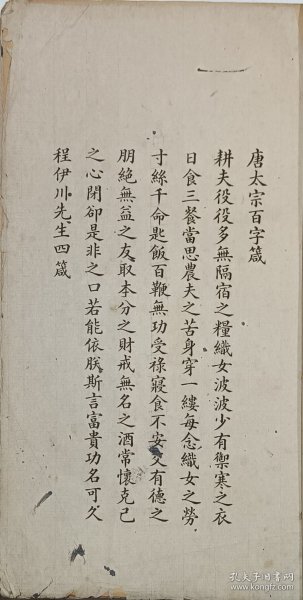 唐太宗百字箴
耕夫役役多無隔宿之糧織女波波少有禦寒之衣
日食三餐當思農夫之苦身穿一縷每念織女之勞
寸絲千命匙飯百鞭無功受祿寢食不安交有德之
朋絶無益之友取本分之財戒無名之酒常懷克己
之心閉卻是非之口若能依朕斯言富貴功名可久
程伊川先生四箴
孔夫子旧书网
book.kongfz.com